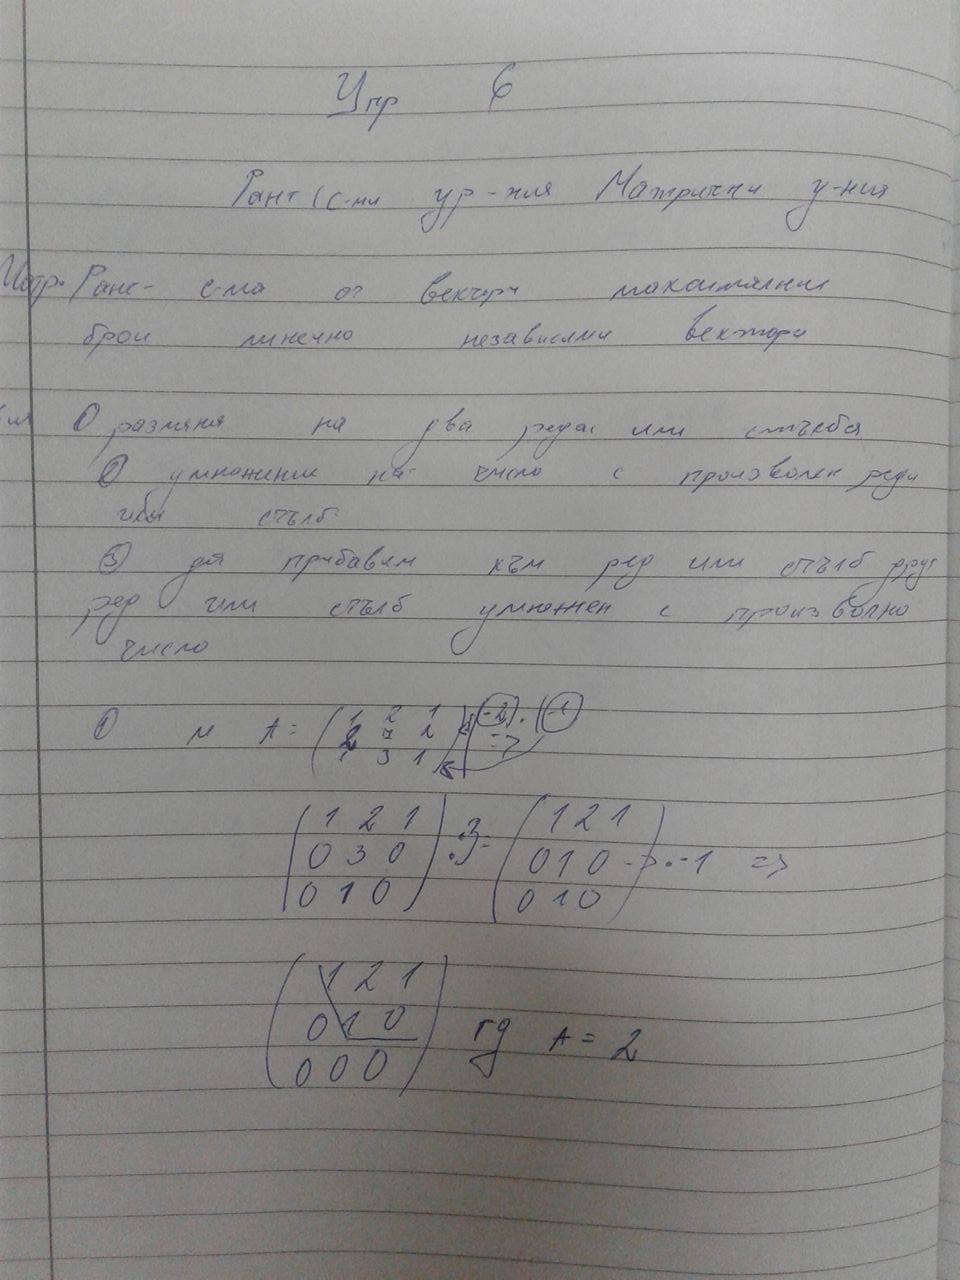 Упр 6
Ранг (с-ми ур-ния Матрични у-ния
Ранг- с-ма от вектори максимални
брой линейно независими вектори
① размяна на два реда или стълба
② умножение на число с произволен ред
или стълб
③ да прибавим към ред или стълб друг
ред или стълб умножен с произволно
число
① A = ( 1 2 1 | (-2). (-1)
2 7 2 =>
1 3 1 )
( 1 2 1 ) ( 1 2 1 )
( 0 3 0 ) :3 = ( 0 1 0 ) -> . -1 =>
( 0 1 0 ) ( 0 1 0 )
( 1 2 1 )
( 0 1 0 ) rg A = 2
( 0 0 0 )